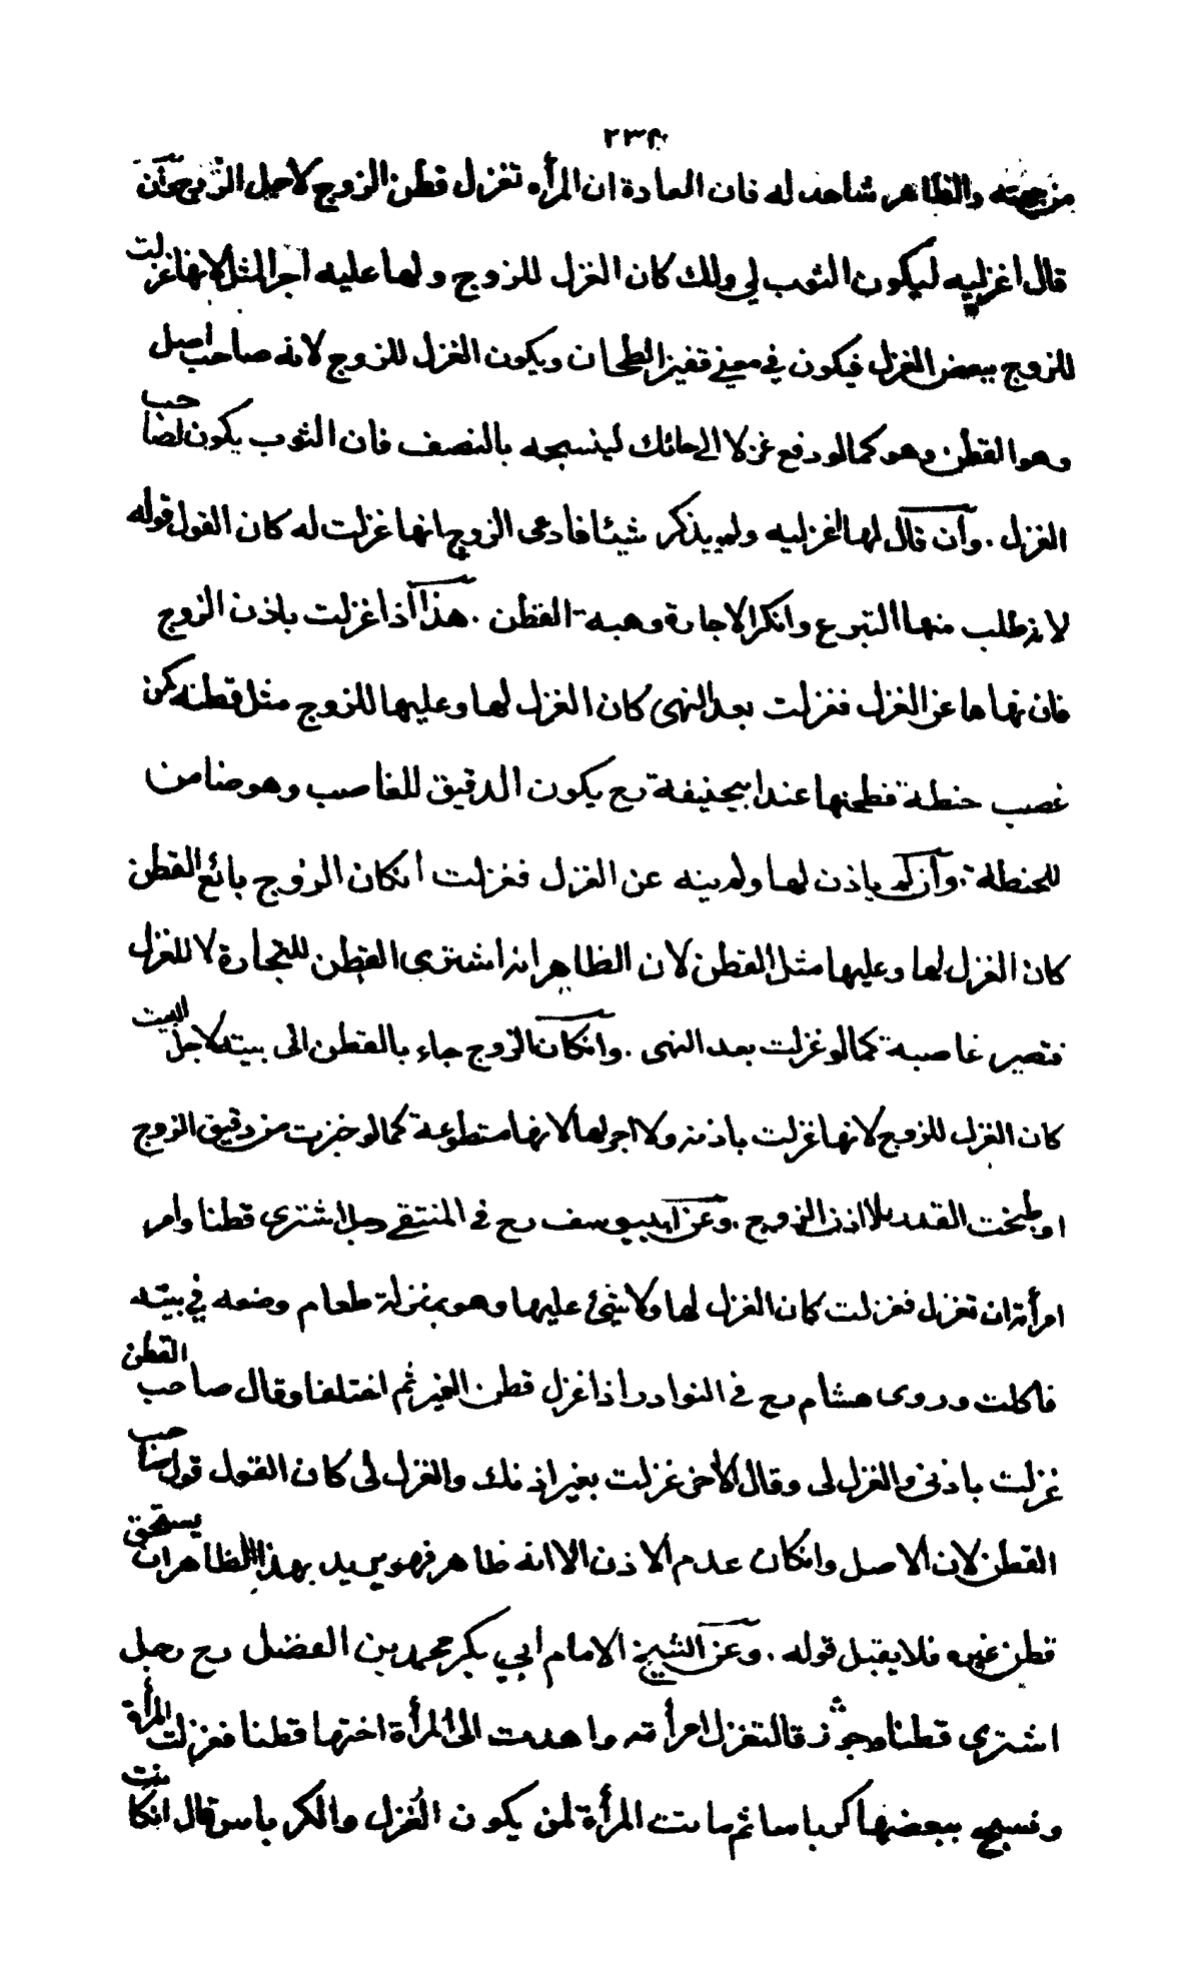 ٢٣٤
من جهته والظاهر شاهد له فان العادة ان المرأه تغزل قطن الزوج لاجل الزوج وان
قال اغزليه ليكون الثوب لي ولك كان الغزل للزوج ولها عليه اجر المثل لانها غزلت
للزوج ببعض الغزل فيكون في معنى قفيز الطحان ويكون الغزل للزوج لانه صاحب اصل
وهو القطن وهو كما لو دفع غزلا الى حائك لينسجه بالنصف فان الثوب يكون لصاحب
الغزل . وان قال لها اغزليه ولم يذكر شيئا فادعى الزوج انها غزلت له كان القول قوله
لانه طلب منها التبرع وانكر الاجارة وهبة القطن . هذا اذا غزلت باذن الزوج
فان نهاها عن الغزل فغزلت بعد النهى كان الغزل لها وعليها للزوج مثل قطنه كمن
غصب حنطة فطحنها عند ابيحنيفة رح يكون الدقيق للغاصب وهو ضامن
للحنطة . وان لم ياذن لها ولم ينه عن الغزل فغزلت انكان الزوج بائع القطن
كان الغزل لها وعليها مثل القطن لان الظاهر انه اشترى القطن للتجارة لا للغزل
فتصير غاصبة كما لو غزلت بعد النهى . وانكان الزوج جاء بالقطن الى بيته لاجل البيت
كان الغزل للزوج لانها غزلت باذنه ولا اجر لها لانها متطوعة كما لو خبزت من دقيق الزوج
او طبخت القدر بلا اذن الزوج . وعن ابييوسف رح في المنتقى رجل اشترى قطنا وامر
امرأته ان تغزل فغزلت كان الغزل لها ولا شئ عليها وهو بمنزلة طعام وضعه في بيته
فاكلت وروى هشام رح في النوادر اذا غزل قطن الغير ثم اختلفا وقال صاحب القطن
غزلت باذنى والغزل لى وقال الآخر غزلت بغير اذنك والغزل لى كان القول قول صاحب
القطن لان الاصل وانكان عدم الاذن الا انه ظاهر فهو يريد بهذا الظاهر ان يستحق
قطن غيره فلا يقبل قوله . وعن الشيخ الامام ابي بكر محمد بن الفضل رح رجل
اشترى قطنا قالتغزل امرأته واهدت الى المرأة اختها قطنا فغزلت المرأة
ونسج ببعضها كرباسا ثم ماتت المرأة لمن يكون الغزل والكرباس قال انكانت